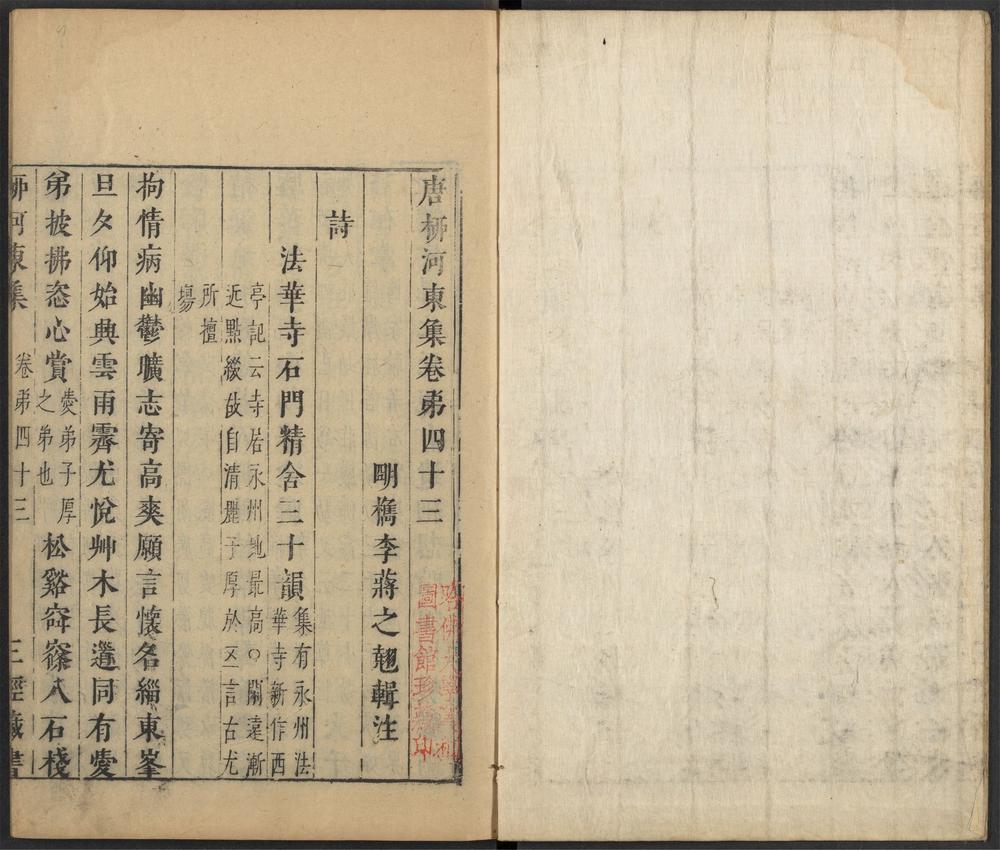 唐柳河東集卷弟四十三
明檇李蔣之翹輯注
詩
法華寺石門精舍三十韻
集有永州法
華寺新作西
亭記云寺居永州地最高○闊遠漸
近點綴故自清麗子厚於五言古尤
所擅
場
拘情病幽鬱曠志寄高爽願言懷名緇東峯
旦夕仰始欣雲雨霽尤悅艸木長道同有愛
弟披拂恣心賞
愛弟子厚
之弟也
松谿窈窱入石棧
柳河東集
卷弟四十三
三徑藏書
圖書館珍藏印